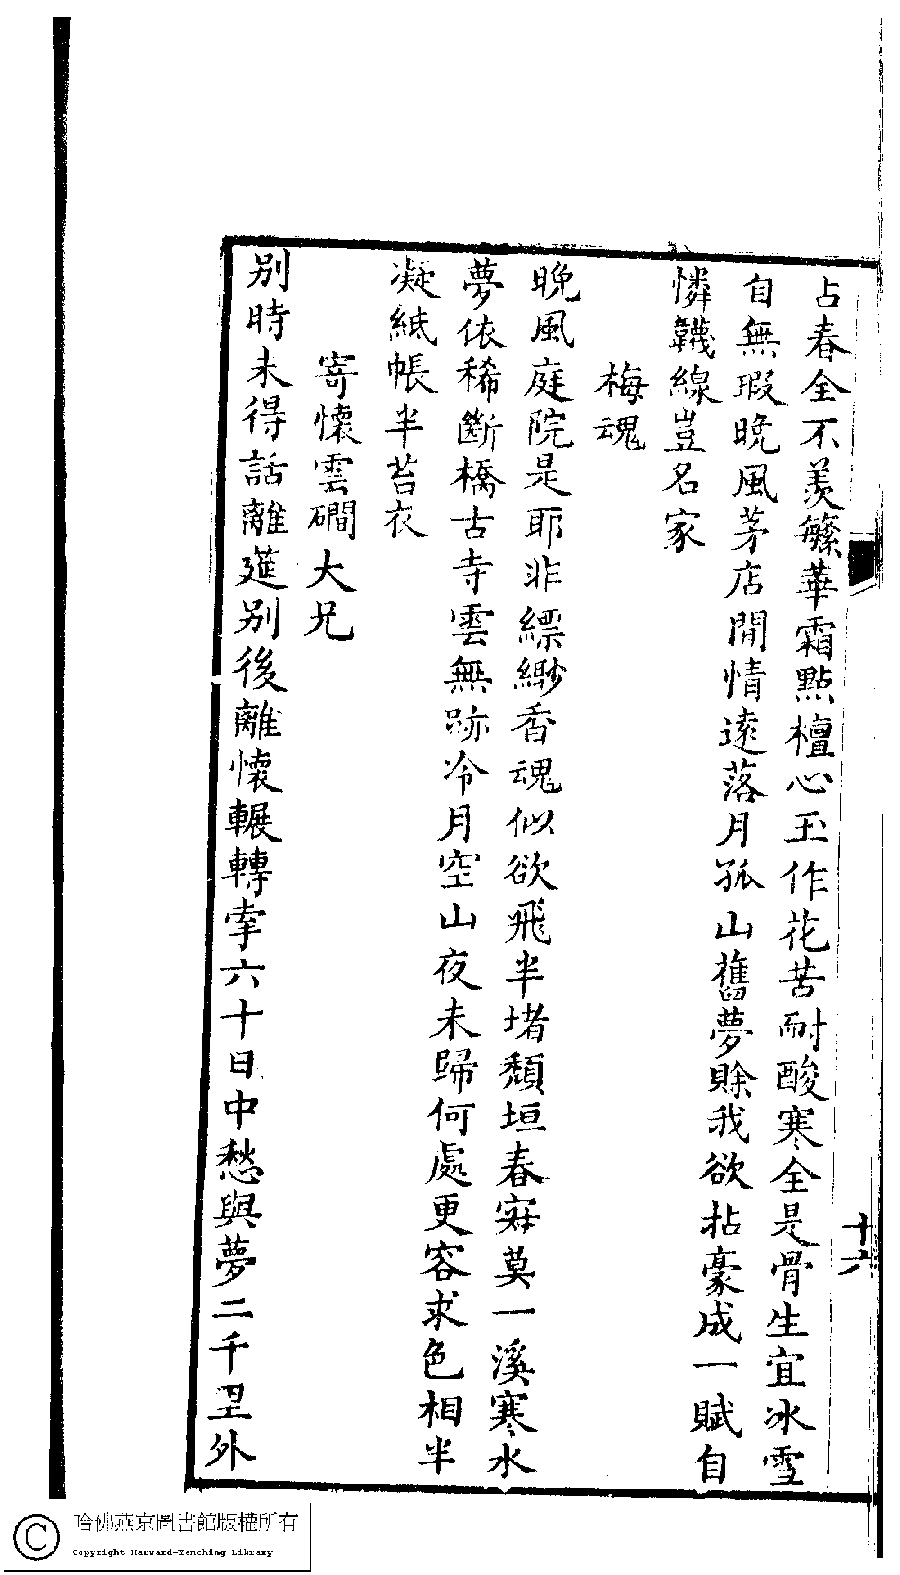 占春全不羡繁華霜點檀心玉作花苦耐酸寒全是骨生宜冰雪
自無瑕晚風茅店閒情遠落月孤山舊夢賒我欲拈豪成一賦自
憐韈線豈名家
梅魂
晚風庭院是耶非縹緲香魂似欲飛半堵頹垣春寂莫一溪寒水
夢依稀斷橋古寺雲無跡冷月空山夜未歸何處更容求色相半
凝紙帳半苔衣
寄懷雲磵大兄
別時未得話離筵別後離懷輾轉牽六十日中愁與夢二千里外
十六
哈佛燕京圖書館版權所有
Copyright Harvard-Yenching Library